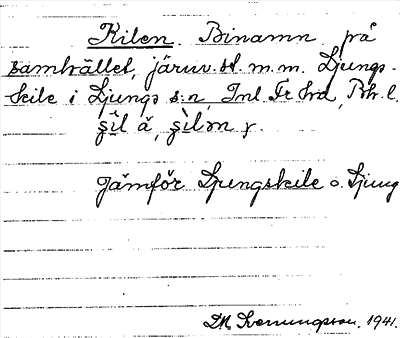 Kilen. Binamn på
samhället, järnv.st. m.m. Ljungs-
kile i Ljungs s:n, Inl. Fr. hd, Boh. l.
Jämför Ljungskile o. Ljung
Henningsson. 1941.